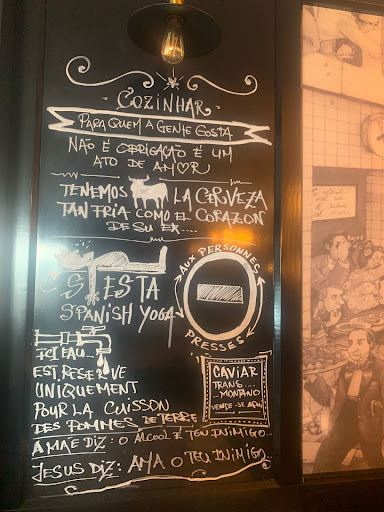 COZINHAR
PARA QUEM A GENTE GOSTA
NÃO É OBRIGAÇÃO É UM
ATO DE AMOR
TENEMOS LA CERVEZA
TAN FRIA COMO EL CORAZON
DE SU EX....
SIESTA
SPANISH YOGA
AUX PERSONNES
PRESSES
ICI EAU...
EST RESERVE
UNIQUEMENT
POUR LA CUISSON
DES POMMES DE TERRE
CAVIAR
TRANS....
...MONTANO
VENDE-SE AQUI
A MÃE DIZ: O ALCOOL É TEU INIMIGO..
JESUS DIZ: AMA O TEU INIMIGO